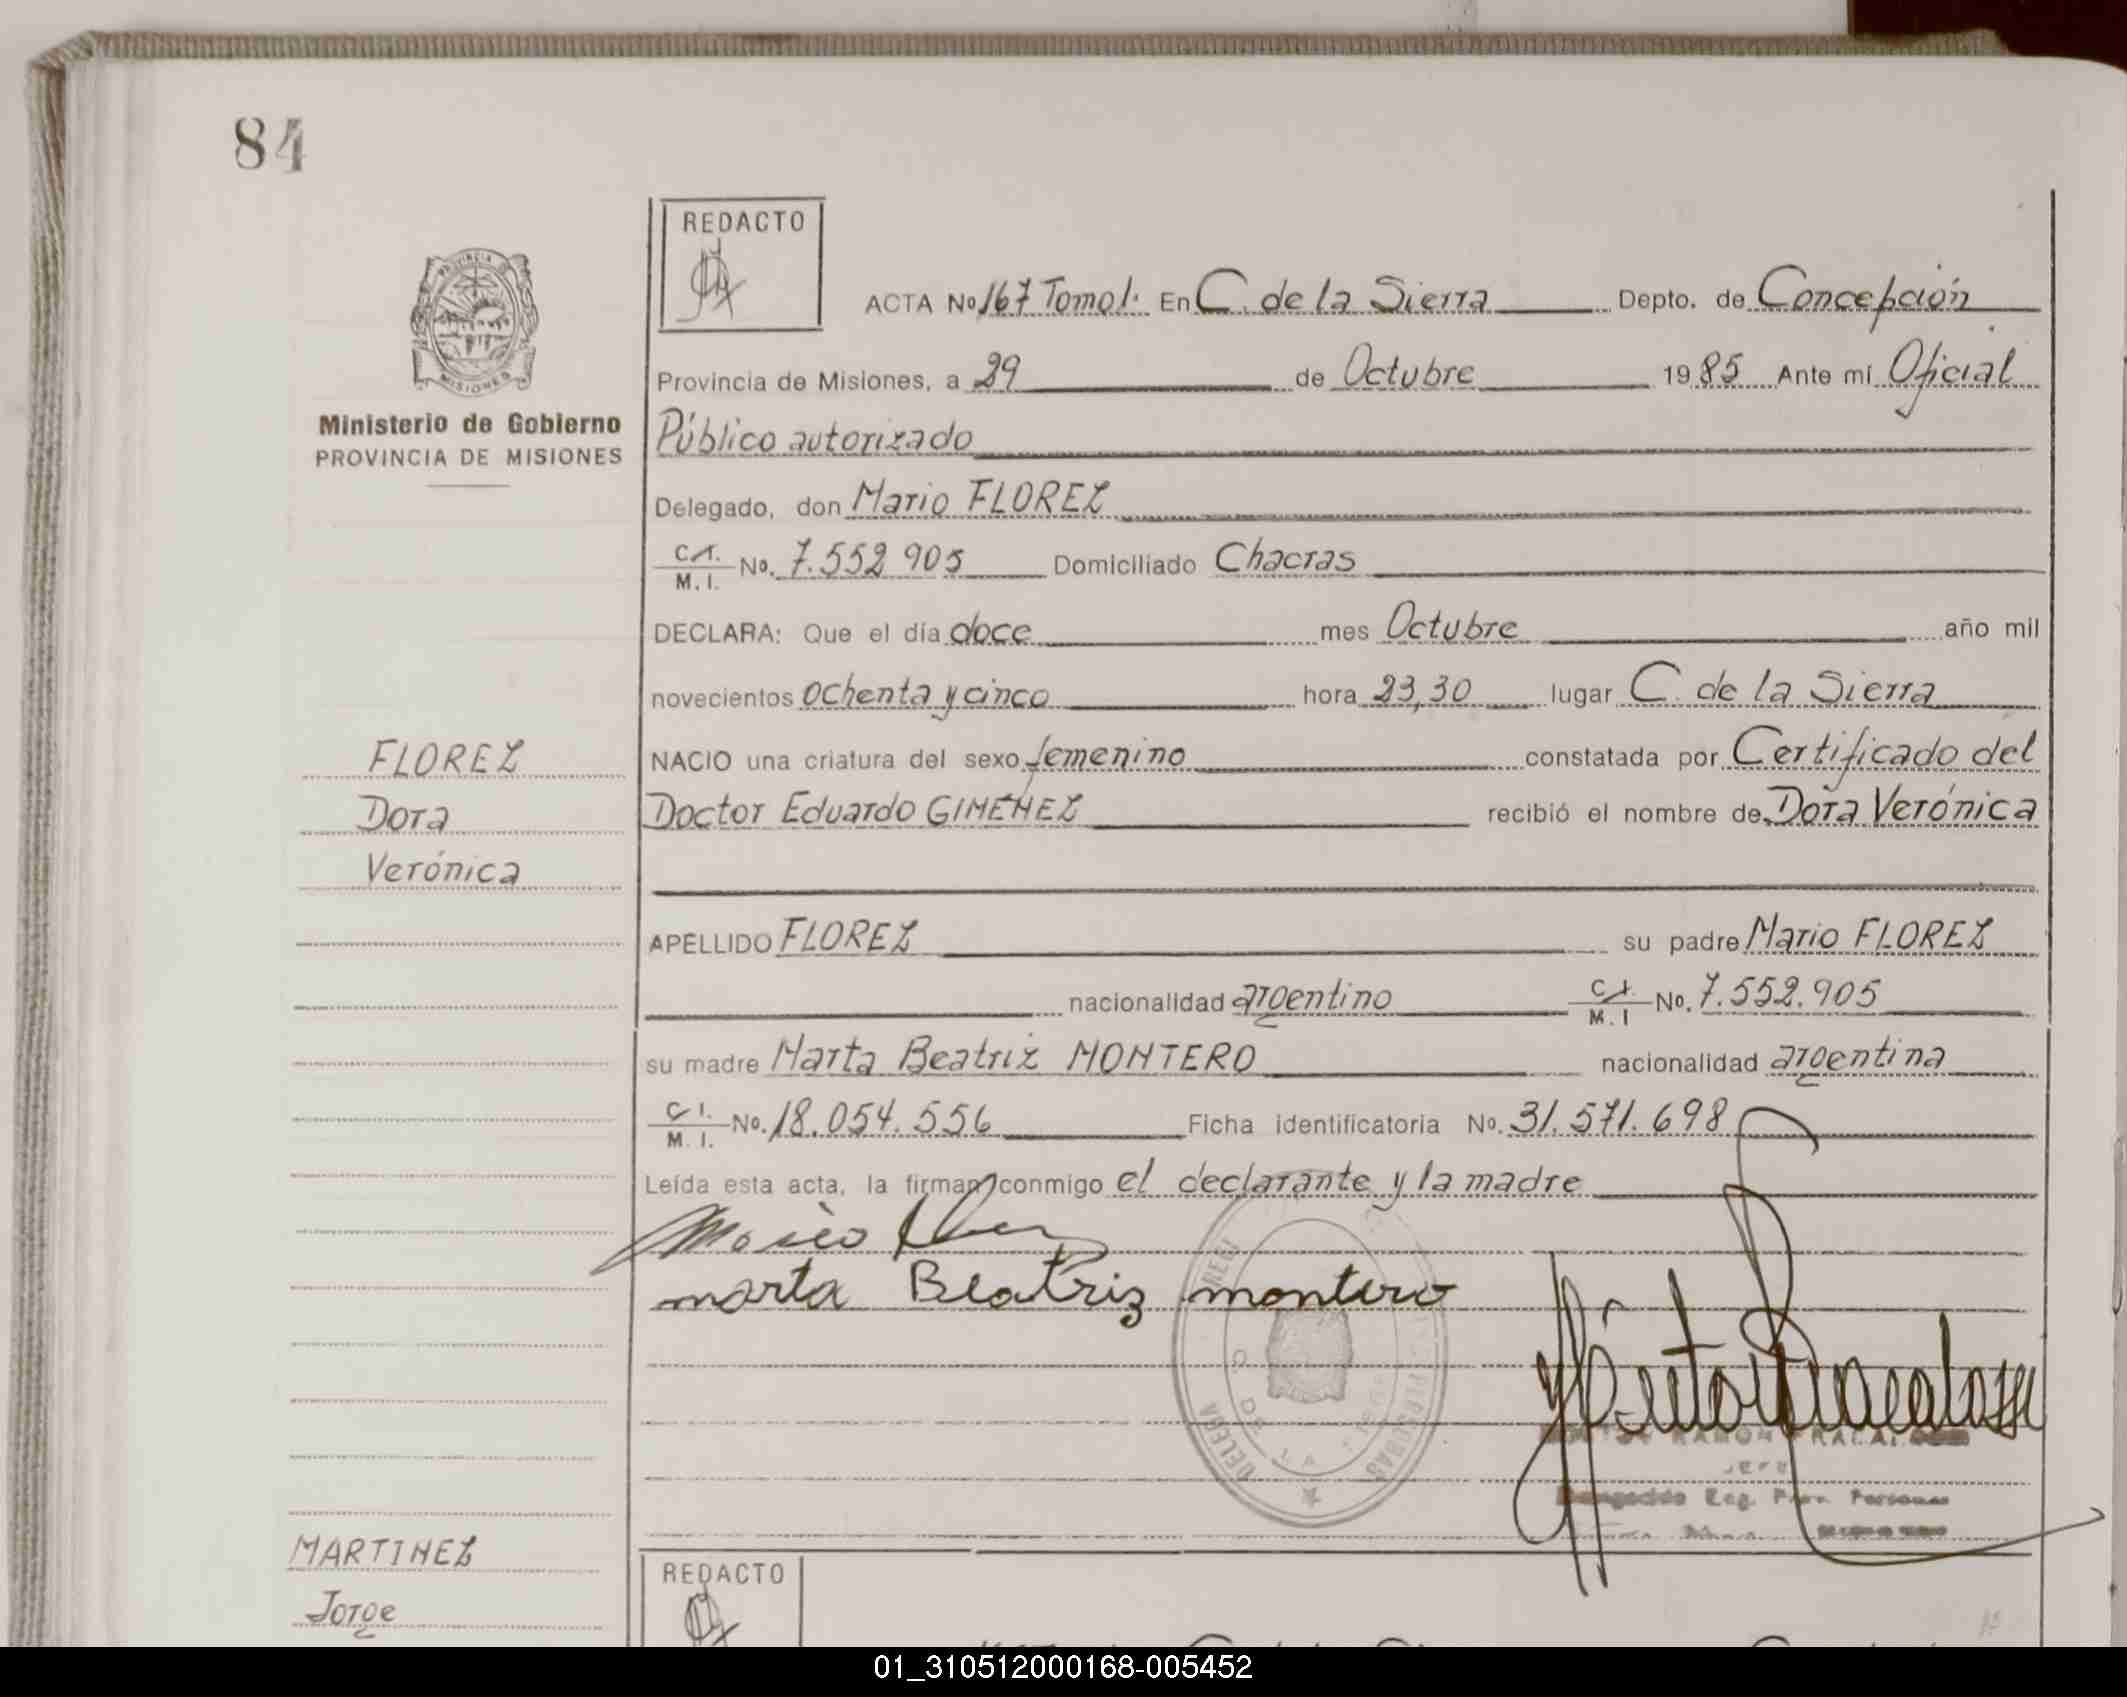 84
REDACTO
ACTA No. 167 Tomo 1. En C. de la Sierra Depto. de Concepción
PROVINCIA DE MISIONES
Provincia de Misiones, a 29 de Octubre 1985 Ante mí Oficial
Ministerio de Gobierno
PROVINCIA DE MISIONES
Público autorizado
Delegado, don Mario FLOREZ
C.I. M.I. No. 7.552 905 Domiciliado Chacras
DECLARA: Que el día doce mes Octubre año mil
novecientos ochenta y cinco hora 23,30 lugar C. de la Sierra
FLOREZ
NACIO una criatura del sexo femenino constatada por Certificado del
Dora
Doctor Eduardo GIMENEZ recibió el nombre de Dora Verónica
Verónica
APELLIDO FLOREZ su padre Mario FLOREZ
nacionalidad argentino C.I. M.I No. 7.552.905
su madre Marta Beatriz MONTERO nacionalidad argentina
C.I. M.I. No. 18.054.556 Ficha identificatoria No. 31.571.698
Leída esta acta, la firman conmigo el declarante y la madre
Mario
marta Beatriz montero
MARTINEZ
Jorge
REDACTO
01_310512000168-005452